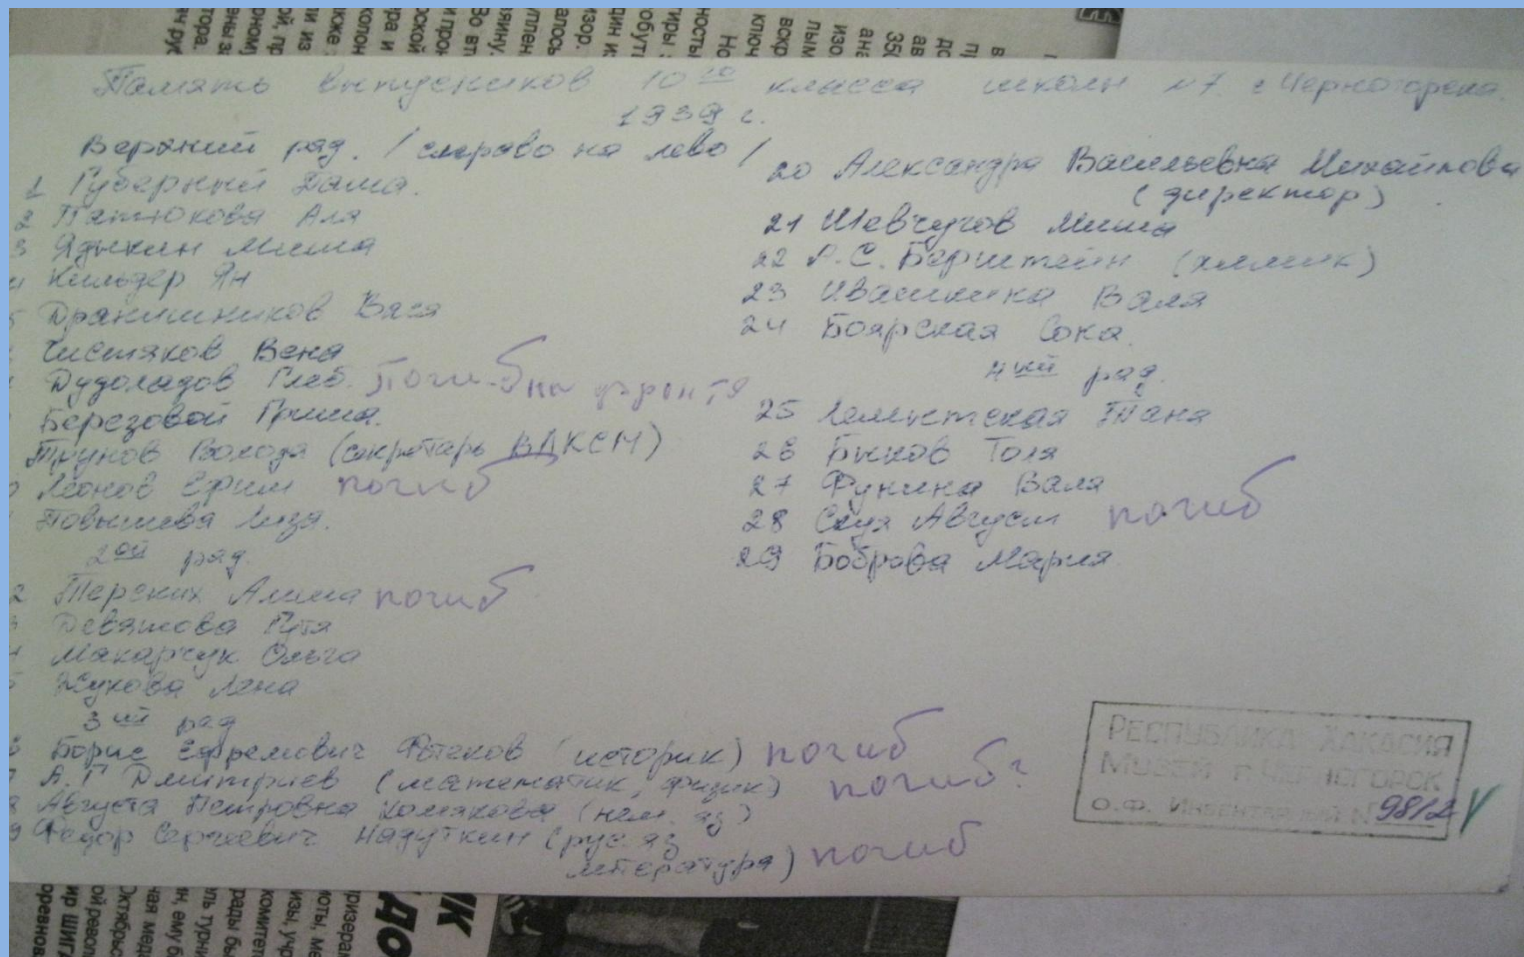 Память выпускников 10го класса школы №7. г. Черногорска.
1939 г.
Верхний ряд. / справо на лево /
1 Губерный Паша.
2 Пятюкова Аля
3 Ядыкин Миша
4 Кильдер Ян
5 Дранишников Вася
Чистяков Вена
Дудоладов Глеб. Погиб на фронте
Березовой Гриша.
Трунов Володя (секретарь ВЛКСМ)
Леонов Ефим погиб
Повышева Лиза.
2ой ряд.
2 Терских Алеша погиб
Девятова Гутя
Макарчук Ольга
Жукова Лена
3ий ряд
Борис Ефремович (историк) погиб
А.Г. Дмитриев (математик, физик) погиб?
Августа Петровна Хомякова (нем. яз)
9 Федор Сергеевич Надуткин (рус. яз
литература) погиб
20 Александра Васильевна Михайлова
(директор)
21 Шевчугов Миша
22 А.С. Берштейн (химик)
23 Ивашкина Валя
24 Боярская Сока.
4ый ряд.
25 Таня
26 Быков Толя
27 Фунина Валя
28 Август погиб
29 Боброва Мария.
РЕСПУБЛИКА ХАКАСИЯ
МУЗЕЙ г. ЧЕРНОГОРСК
О.Ф. ИНВЕНТАРНЫЙ № 9812